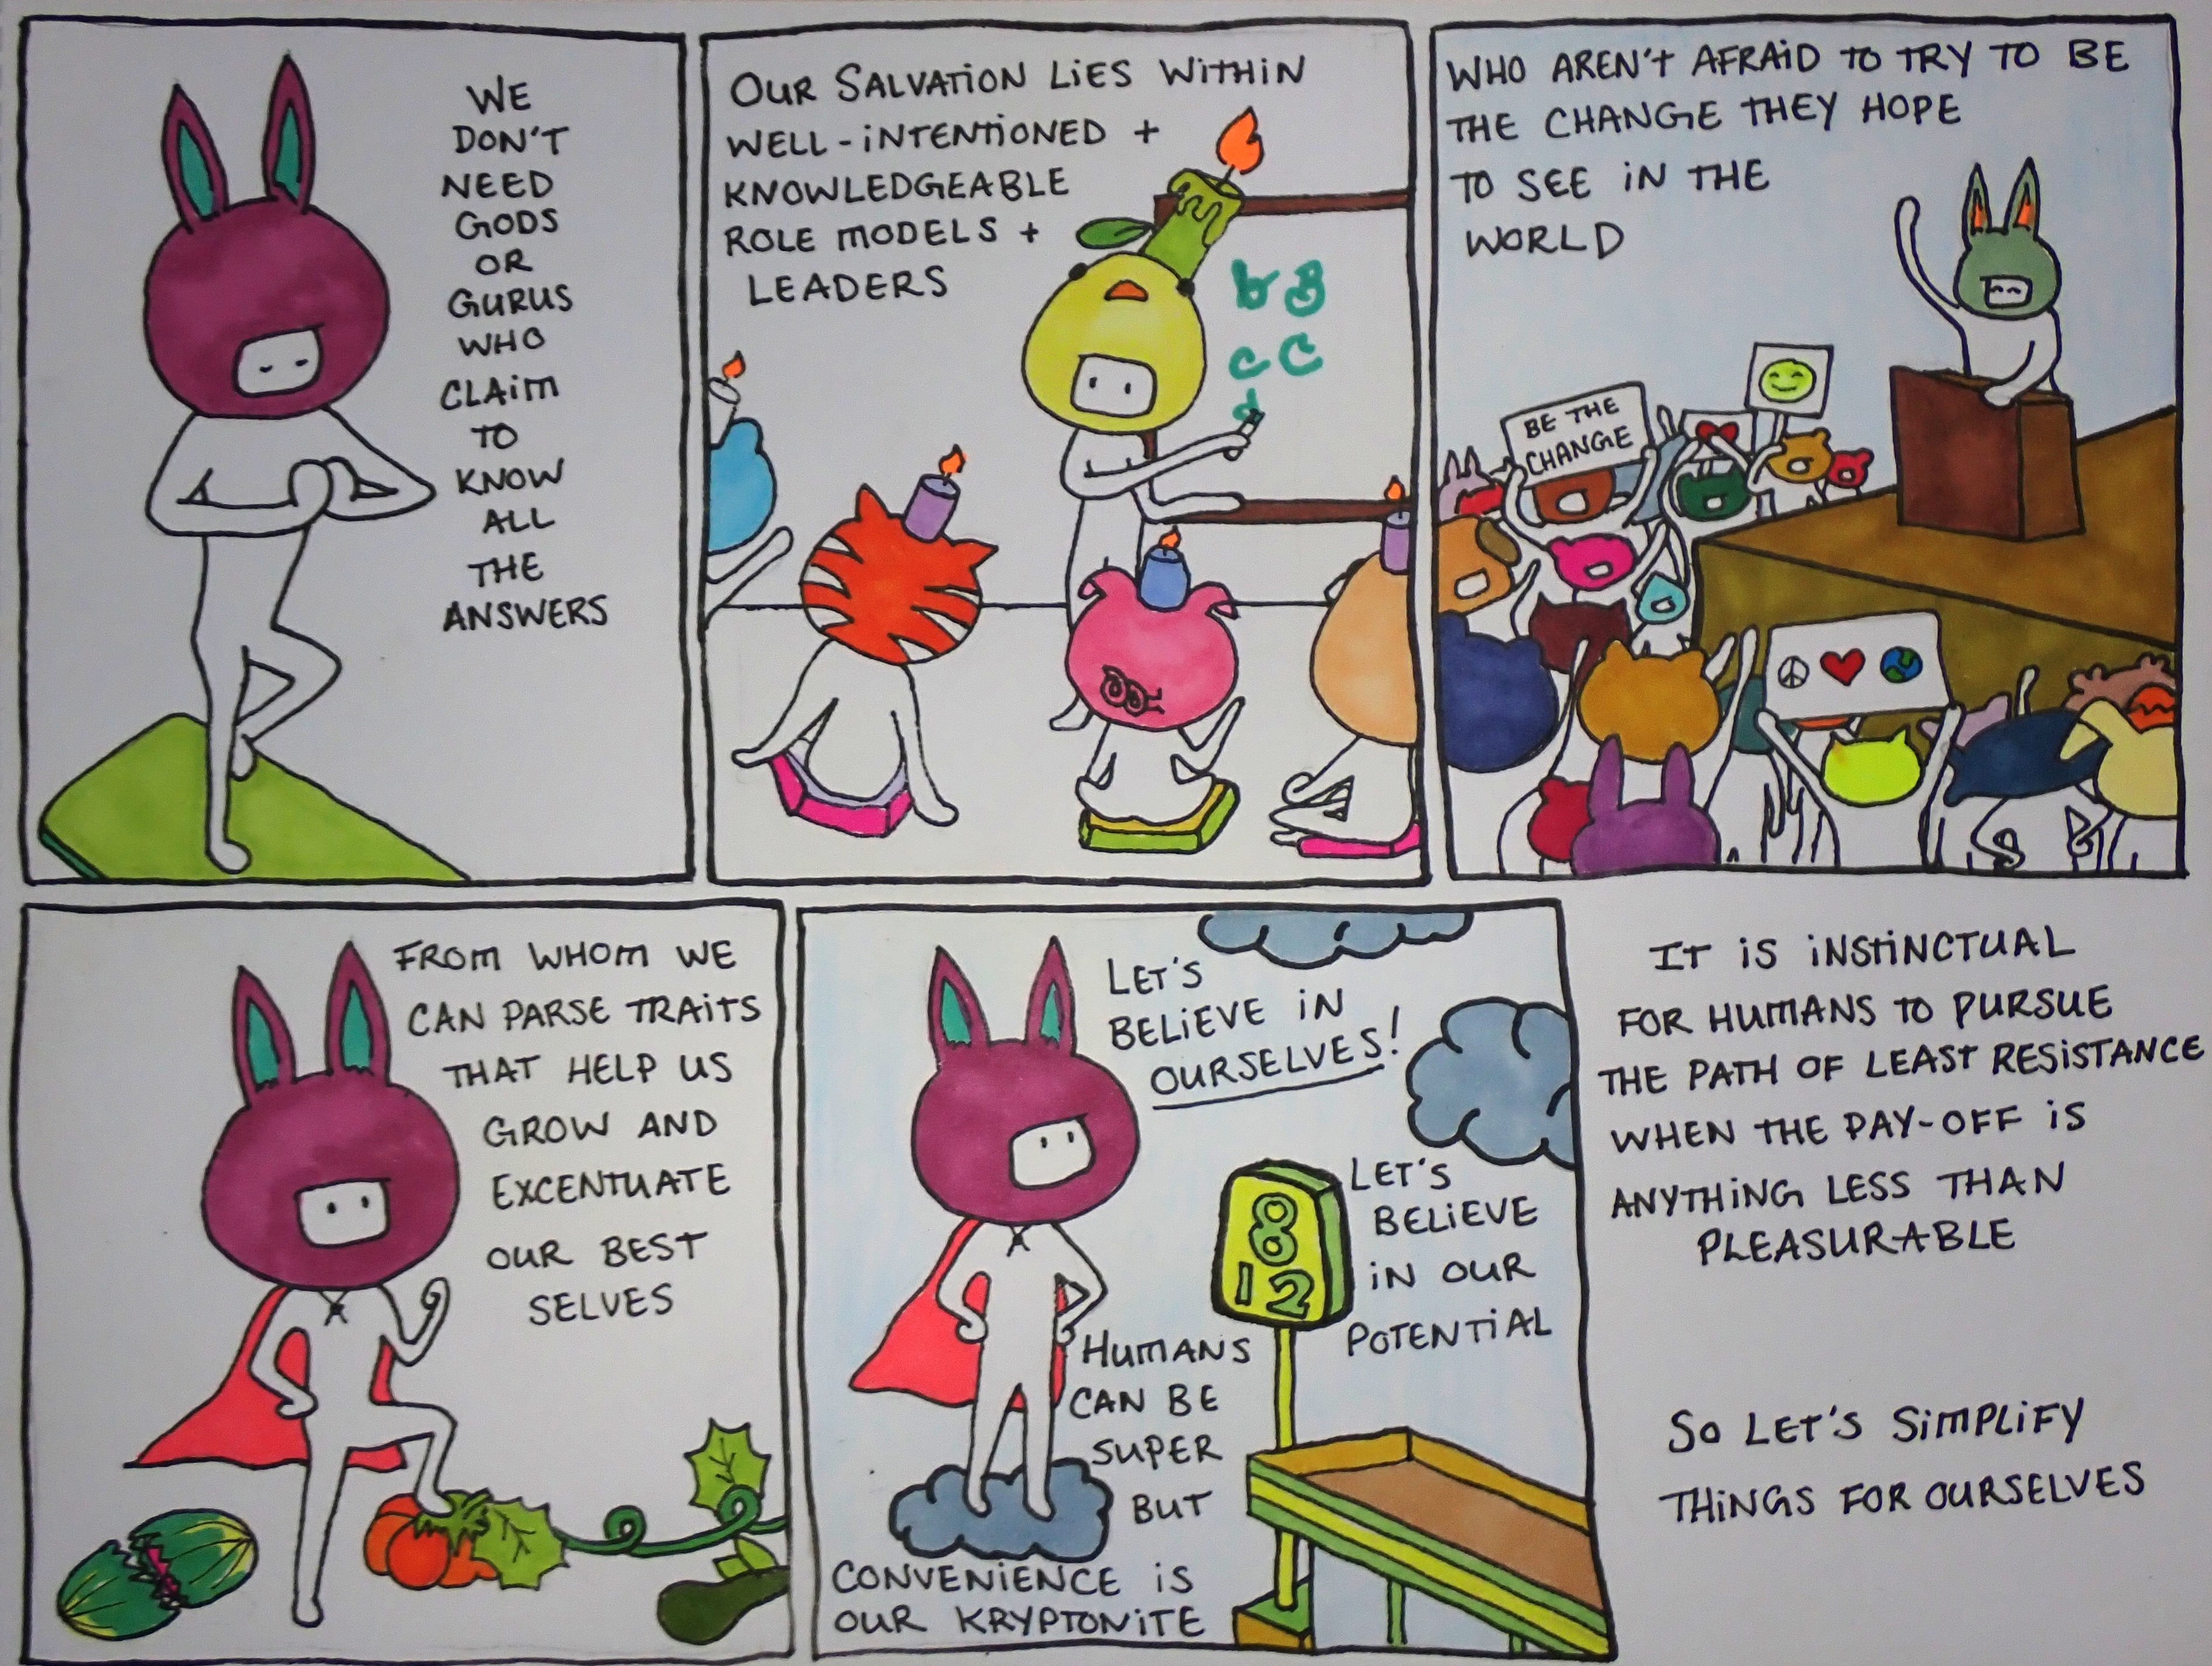 WE
DON'T
NEED
GODS
OR
GURUS
WHO
CLAIM
TO
KNOW
ALL
THE
ANSWERS
OUR SALVATION LIES WITHIN
WELL-INTENTIONED +
KNOWLEDGEABLE
ROLE MODELS +
LEADERS
b B
c C
d
WHO AREN'T AFRAID TO TRY TO BE
THE CHANGE THEY HOPE
TO SEE IN THE
WORLD
BE THE
CHANGE
FROM WHOM WE
CAN PARSE TRAITS
THAT HELP US
GROW AND
EXCENTUATE
OUR BEST
SELVES
LET'S
BELIEVE IN
OURSELVES!
8
12
LET'S
BELIEVE
IN OUR
POTENTIAL
HUMANS
CAN BE
SUPER
BUT
CONVENIENCE IS
OUR KRYPTONITE
IT IS INSTINCTUAL
FOR HUMANS TO PURSUE
THE PATH OF LEAST RESISTANCE
WHEN THE PAY-OFF IS
ANYTHING LESS THAN
PLEASURABLE
SO LET'S SIMPLIFY
THINGS FOR OURSELVES